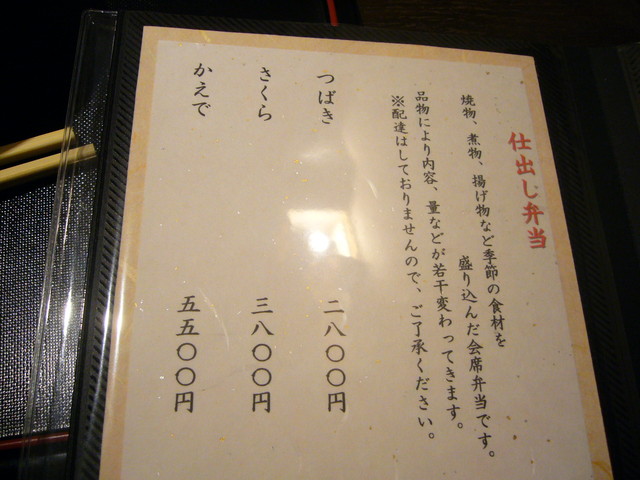 仕出し弁当
焼物、煮物、揚げ物など季節の食材を
盛り込んだ会席弁当です。
品物により内容、量などが若干変わってきます。
※配達はしておりませんので、ご了承ください。
つばき 二八〇〇円
さくら 三八〇〇円
かえで 五五〇〇円